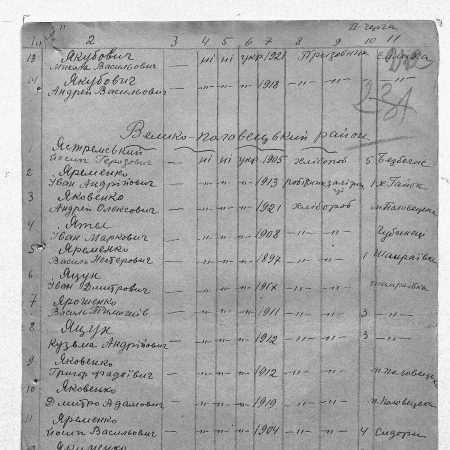 "Я" II черга
1. 2 3 4 5 6 7 8 9 10 11
13 Якубович
Микола Васильович — ні ні укр. 1921 Призовник
14 Якубович
Андрей Васильович — -„- -„- -„- 1918 -„- -„- -„-
231
Велико-Половецький район.
1 Ястремський
Йосип — ні ні укр 1905 хлібороб 5
2 Яременко
Іван Андрійович — -„- -„- -„- 1913 1 х. Гайок
3 Яковенко
Андрей Олексович — -„- -„- -„- 1921 хлібороб м. Половецьке
4
Іван Маркович — -„- -„- -„- 1908 -„- -„-
5 Яременко
Василь Нестерович — -„- -„- -„- 1897 -„- -„- 1 Шамраївка
6 Яцун
Іван Дмитрович — -„- -„- -„- 1917 -„- -„- Шамраївка
7 Ярошенко
Василь — -„- -„- -„- 1911 -„- -„- 3 -„-
8 Яцун
Кузьма Андрійович — -„- -„- -„- 1912 -„- -„- 3 -„-
9 Яковенко
Григор Фадоївич — -„- -„- -„- 1912 -„- -„-
10 Яковенко
Дмитро Адамович — -„- -„- -„- 1919 -„- -„- м. Половецьке
11 Яременко
Йосип Васильович — -„- -„- -„- 1904 -„- -„- 4 Сидори